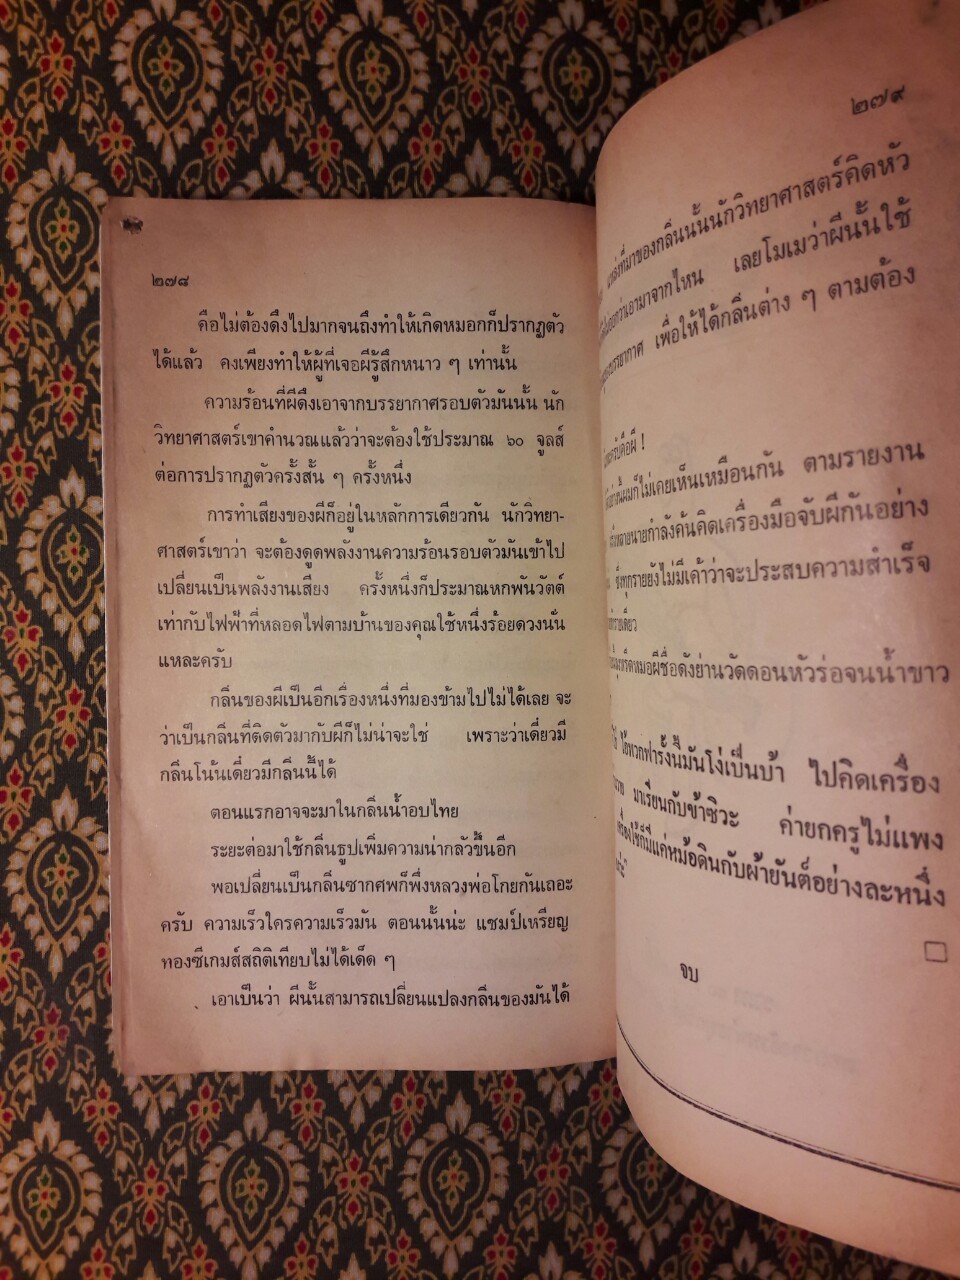 ๒๗๘
คือไม่ต้องดึงไปมากจนถึงทำให้เกิดหมอกก็ปรากฏตัว
ได้แล้ว คงเพียงทำให้ผู้ที่เจอผีรู้สึกหนาว ๆ เท่านั้น
ความร้อนที่ผีดึงเอาจากบรรยากาศรอบตัวมันนั้น นัก
วิทยาศาสตร์เขาคำนวณแล้วว่าจะต้องใช้ประมาณ ๖๐ จูลส์
ต่อการปรากฏตัวครั้งสั้น ๆ ครั้งหนึ่ง
การทำเสียงของผีก็อยู่ในหลักการเดียวกัน นักวิทยา-
ศาสตร์เขาว่า จะต้องดูดพลังงานความร้อนรอบตัวมันเข้าไป
เปลี่ยนเป็นพลังงานเสียง ครั้งหนึ่งก็ประมาณหกพันวัตต์
เท่ากับไฟฟ้าที่หลอดไฟตามบ้านของคุณใช้หนึ่งร้อยดวงนั่น
แหละครับ
กลิ่นของผีเป็นอีกเรื่องหนึ่งที่มองข้ามไปไม่ได้เลย จะ
ว่าเป็นกลิ่นที่ติดตัวมากับผีก็ไม่น่าจะใช่ เพราะว่าเดี๋ยวมี
กลิ่นโน้นเดี๋ยวมีกลิ่นนี้ได้
ตอนแรกอาจจะมาในกลิ่นน้ำอบไทย
ระยะต่อมาใช้กลิ่นธูปเพิ่มความน่ากลัวขึ้นอีก
พอเปลี่ยนเป็นกลิ่นซากศพก็พึ่งหลวงพ่อโกยกันเถอะ
ครับ ความเร็วใครความเร็วมัน ตอนนั้นน่ะ แชมป์เหรียญ
ทองซีเกมส์สถิติเทียบไม่ได้เด็ด ๆ
เอาเป็นว่า ผีนั้นสามารถเปลี่ยนแปลงกลิ่นของมันได้
๒๗๙
แหล่งที่มาของกลิ่นนั้นนักวิทยาศาสตร์คิดหัว
ว่าเอามาจากไหน เลยโมเมว่าผีนั้นใช้
บรรยากาศ เพื่อให้ได้กลิ่นต่าง ๆ ตามต้อง
คือผี !
ผมก็ไม่เคยเห็นเหมือนกัน ตามรายงาน
หลายนายกำลังค้นคิดเครื่องมือจับผีกันอย่าง
ซึ่งทุกรายยังไม่มีเค้าว่าจะประสบความสำเร็จ
รายเดียว
หมอผีชื่อดังย่านวัดดอนหัวร่อจนน้ำขาว
ไอ้พวกฟารั่งนี้มันโง่เป็นบ้า ไปคิดเครื่อง
มาเรียนกับข้าซิวะ ค่ายกครูไม่แพง
เครื่องใช้ก็มีแค่หม้อดินกับผ้ายันต์อย่างละหนึ่ง
จบ